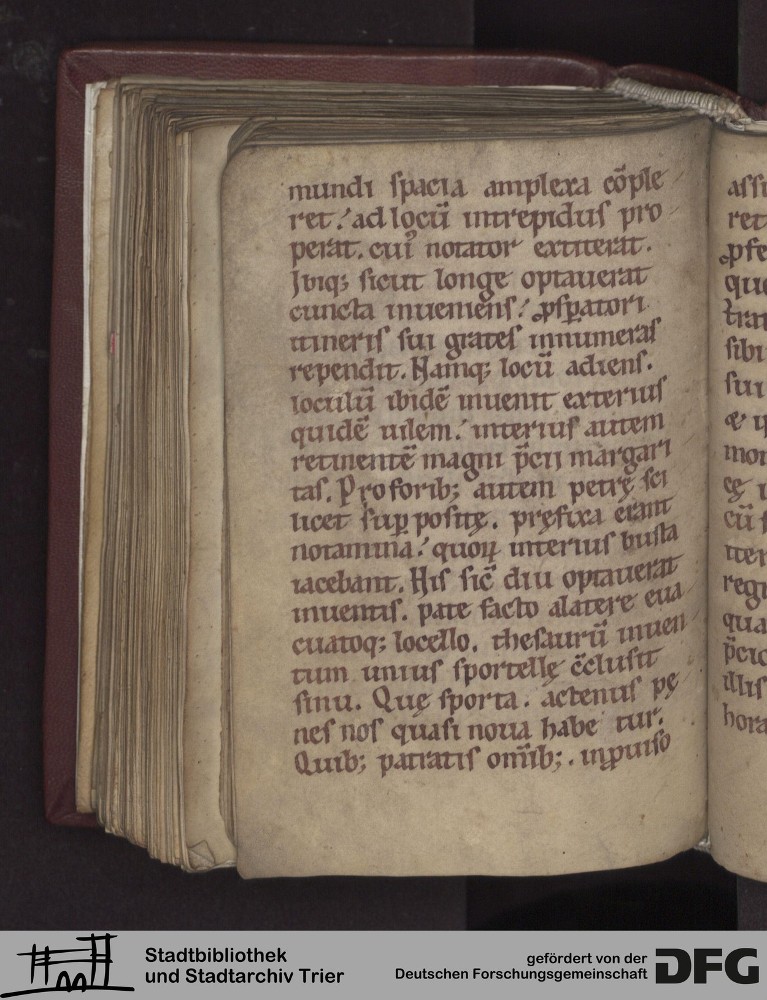 mundi spacia amplexa cõple
ret. ad locũ intrepidus pro
perat. cui notator extiterat.
Ibiq; sicut longe optauerat
cuncta inueniens. ꝓsꝑatori
itineris sui grates innumeras
rependit. Namq; locũ adiens.
loculũ ibidẽ inuenit exterius
quidẽ uilem. interius autem
retinentẽ magni p̃cii margari
tas. Pro forib; autem petrę sci
licet suꝑpositę. pręfixa erant
notamina. quoꝝ interius busta
iacebant. His sic̃ diu optauerat
inuentis. pate facto alatere eua
cuatoq; locello. thesaurũ inuen
tum unius sportellę c̃clusit
sinu. Quę sporta. actenus pę
nes nos quasi noua habe tur.
Quib; patratis om̃ib;. inꝓuiso
assi
ret
ꝓfe
que
tran
sibi
sui
mon
cũ
iter
regi
qua
p̃cio
illis
hora
Stadtbibliothek
und Stadtarchiv Trier
gefördert von der
Deutschen Forschungsgemeinschaft
DFG